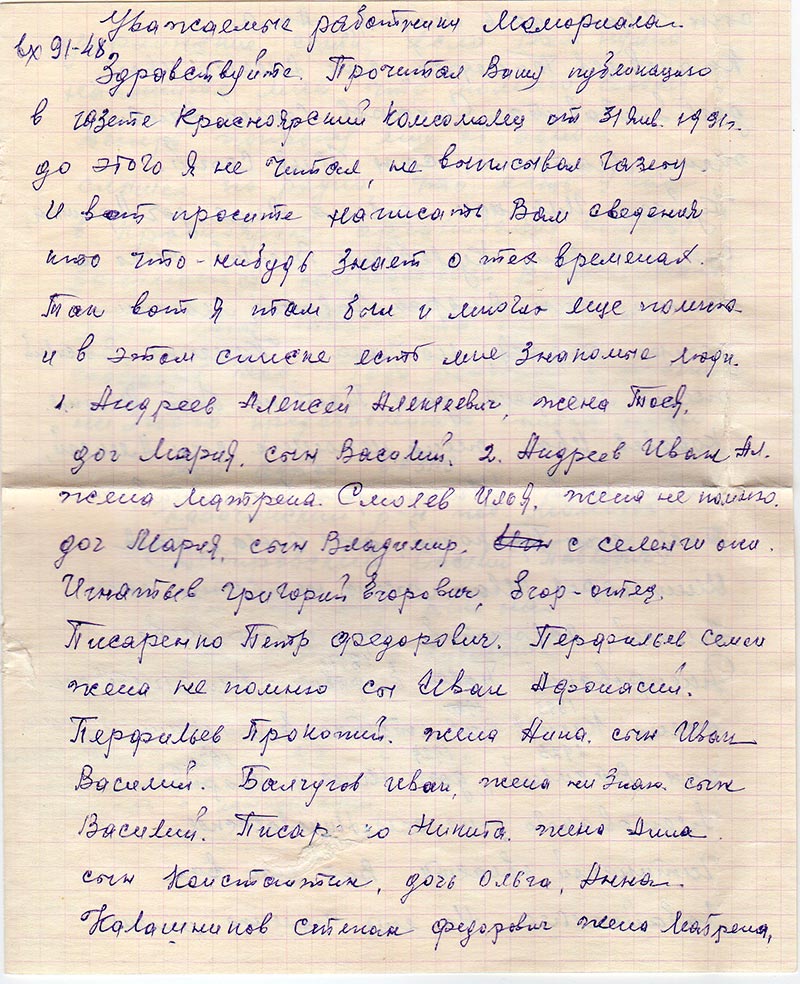 Уважаемые работники Мемориала.
вх 91-48
Здравствуйте. Прочитал Вашу публикацию
в газете Красноярский Комсомолец от 31 янв. 1991г.
до этого я не читал, не выписывал газету.
И вот просите написать Вам сведения
кто что-нибудь знает о тех временах.
Так вот я там был и многих еще помню
и в этом списке есть мне знакомые люди.
1. Андреев Алексей Алексеевич, жена Тося,
доч Мария. сын Василий. 2. Андреев Иван Ал.
жена Матрена. Смолев Илья. жена не помню.
доч Мария, сын Владимир. с селенги они.
Игнатьев Григорий Егорович, Егор-отец.
Писаренко Петр Федорович. Перфильев Семен
жена не помню сы Иван Афонасий.
Перфильев Прокопий. жена Анна. сын Иван
Василий. Балчугов Иван, жена не знаю. сын
Василий. Писар о Никита. жена Анна.
сын Константин, дочь Ольга, Анна.
Калашников Степан Федорович жена Матрена,